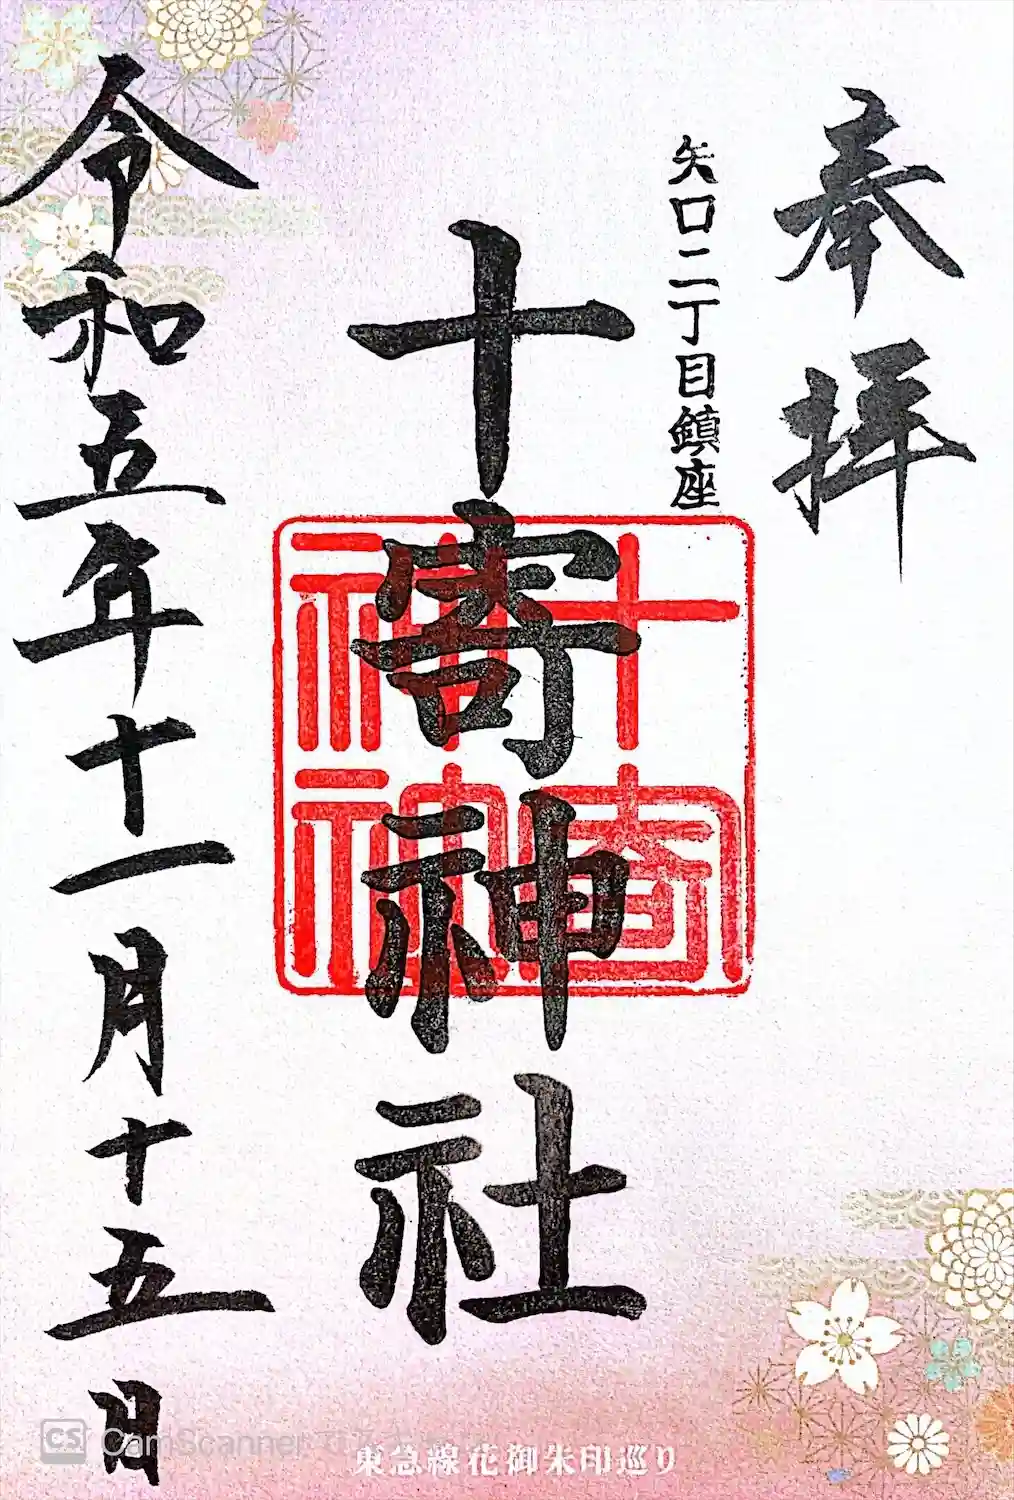 奉拝
矢口二丁目鎮座
十寄神社
十寄神社
令和五年十一月十五日
東急線花御朱印巡り
CS CamScanner